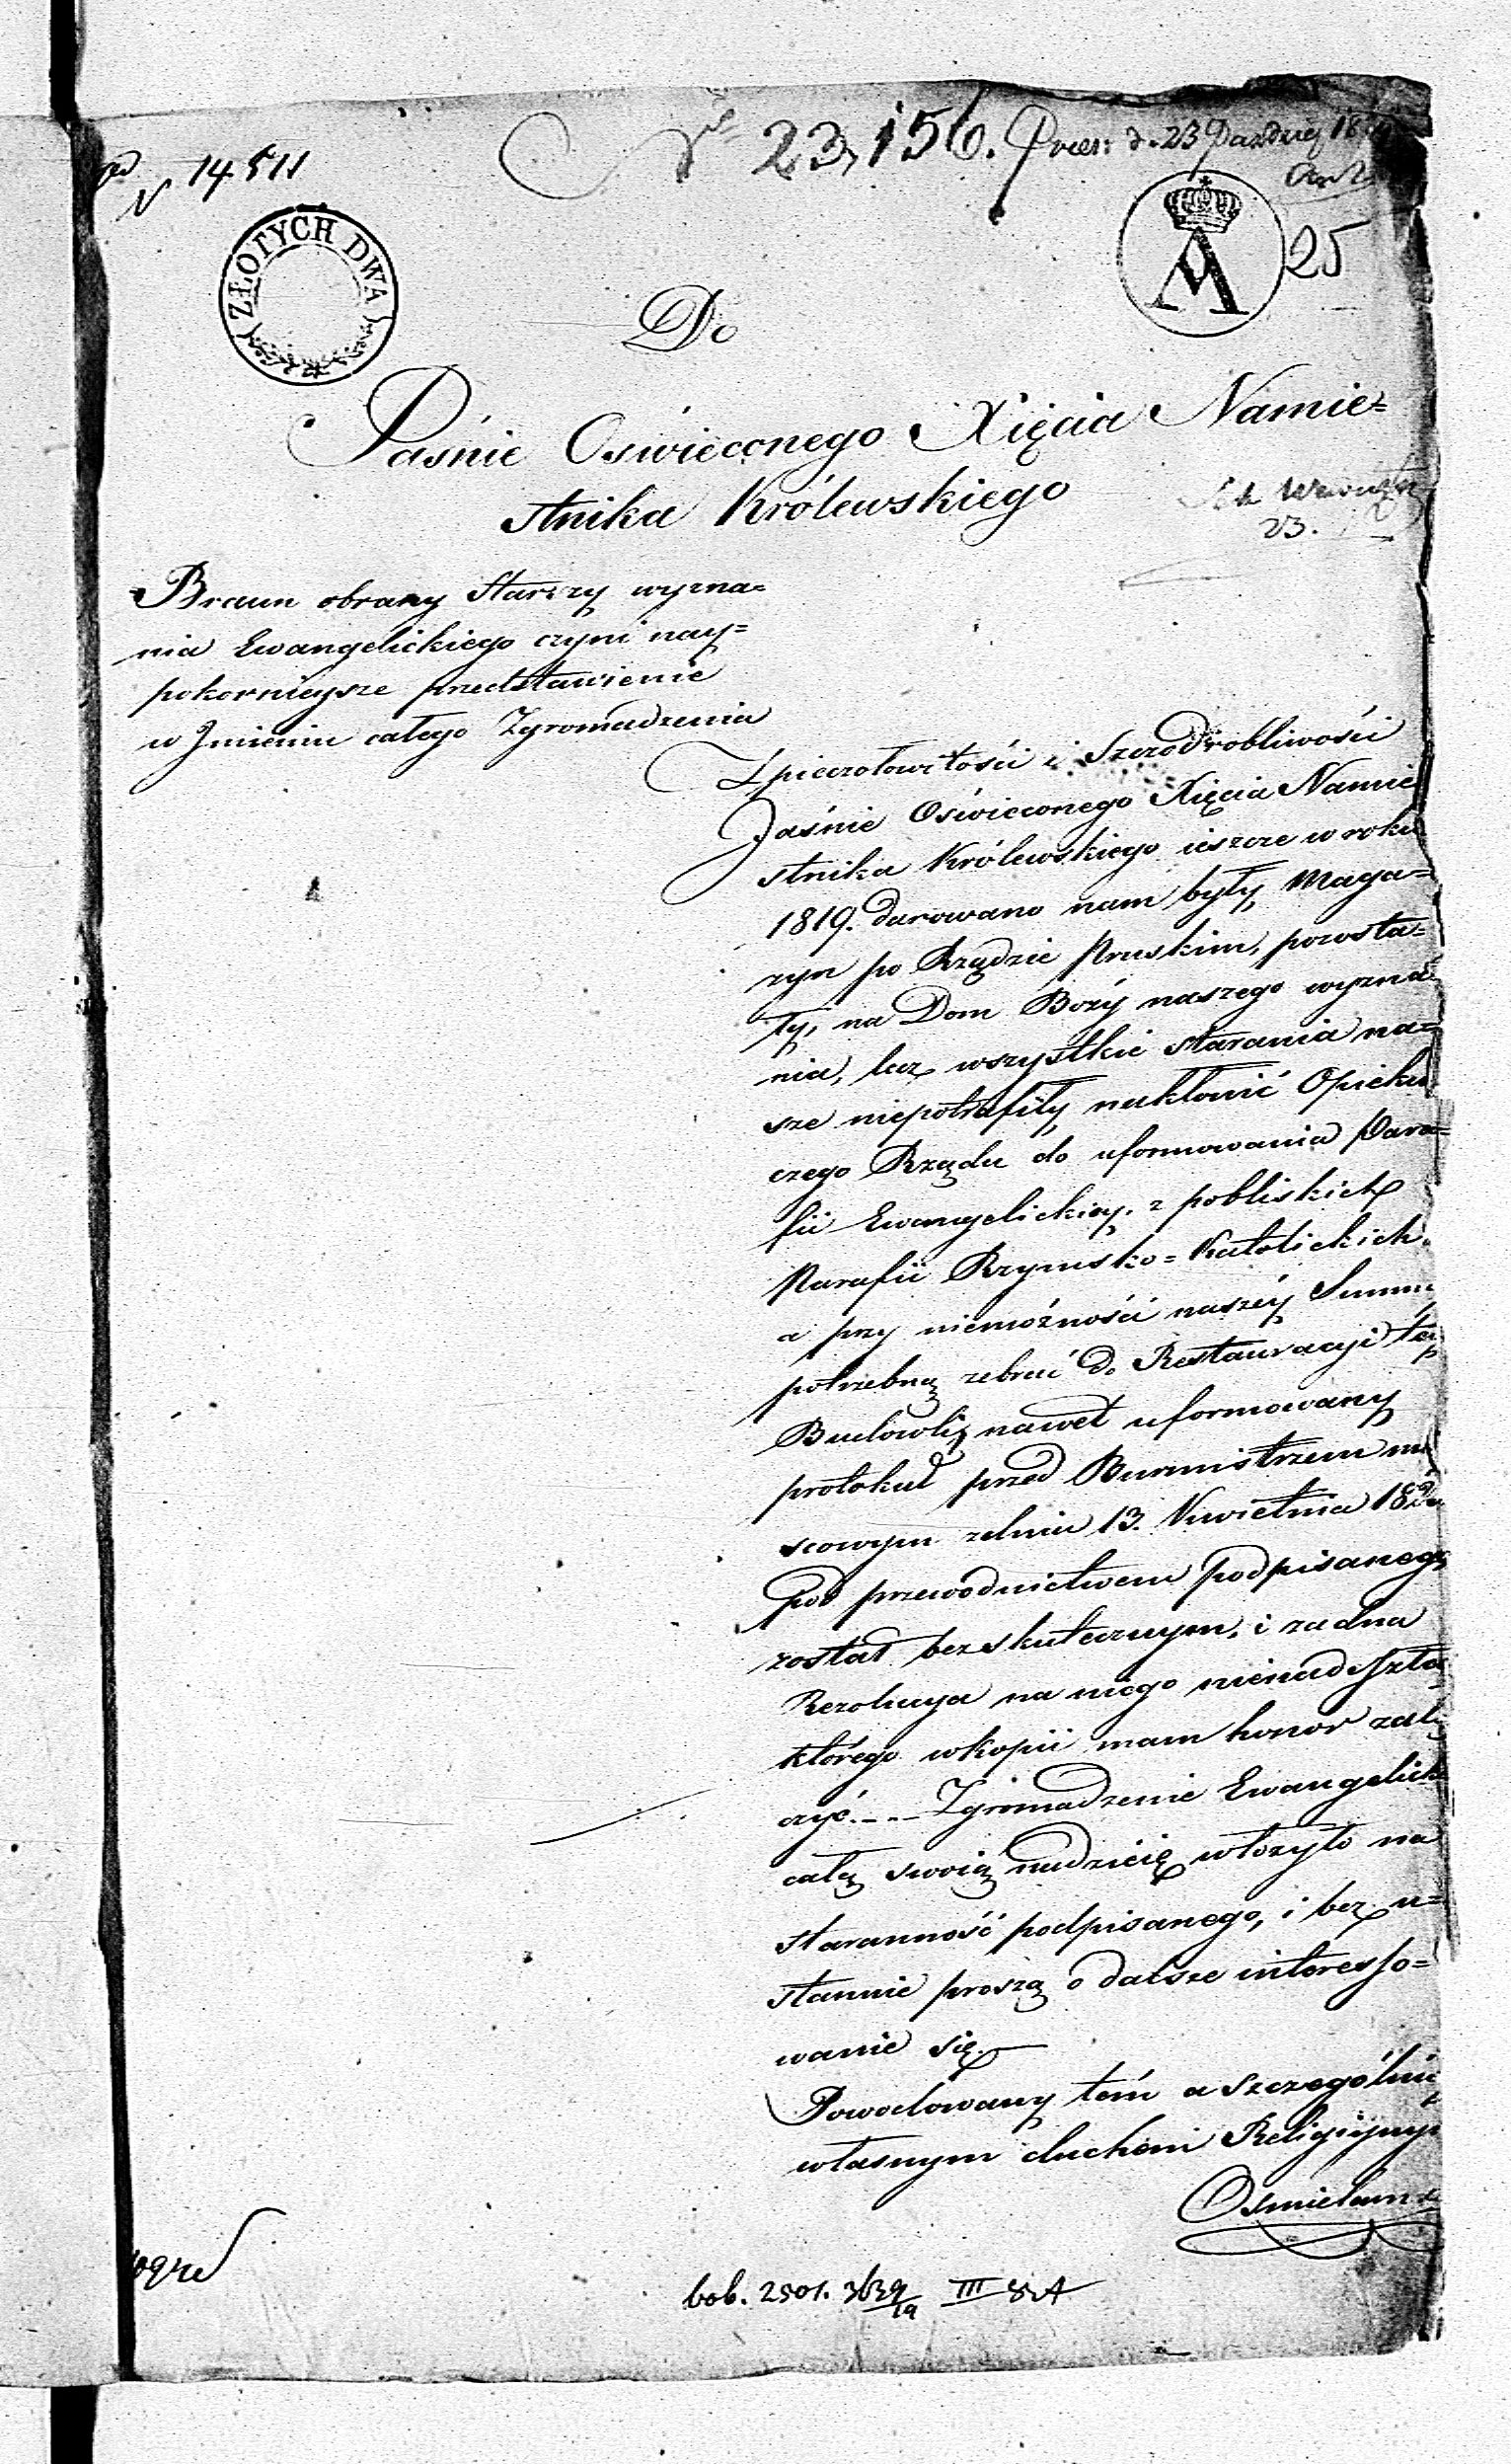 N 14511
Nro 23,156. Praes: d. 23 Paździer 18
25
ZŁOTYCH DWA
Do
Jaśnie Oświeconego Xięcia Namie=
stnika Królewskiego
23.
Braun obrany Starszy wyzna=
nia Ewangelickiego czyni nay=
pokornieysze przedstawienie
w Jmieniu całego Zgromadzenia
Z pieczołowitości i Szczodrobliwości
Jaśnie Oświeconego Xięcia Namie
stnika Królewskiego ieszcze w roku
1819. darowano nam były Maga=
zyn po Rządzie Pruskim, pozosta=
ły, na Dom Boży naszego wyzna=
nia, lecz wszystkie starania na=
sze niepotrafiły nakłonić Opieku
czego Rządu do uformowania Para=
fii Ewangelickiey, z pobliskich
Parafii Rzymsko=Katolickich,
a przy niemożności naszéy Summ
potrzebną zebrać do Restauracyi téy
Budowli, nawet uformowany
protokuł przed Burmistrzem mi
scowym zdnia 13. Kwietnia 18
pod przewodnictwem podpisanego
został bezskutecznym, i zadna
Rezolucya na niego nienadeszła,
którego wkopii mam honor załą
czyć.--- Zgromadzenie Ewangelick
całą swoią nadzieię włożyło na
staranność podpisanego, i bez u=
stannie proszą o dalsze interesso=
wanie się.—
Powodowany tém a szczególnie
własnym duchem Religiynym
Osmielam
bob. 2501. 3639/19 III